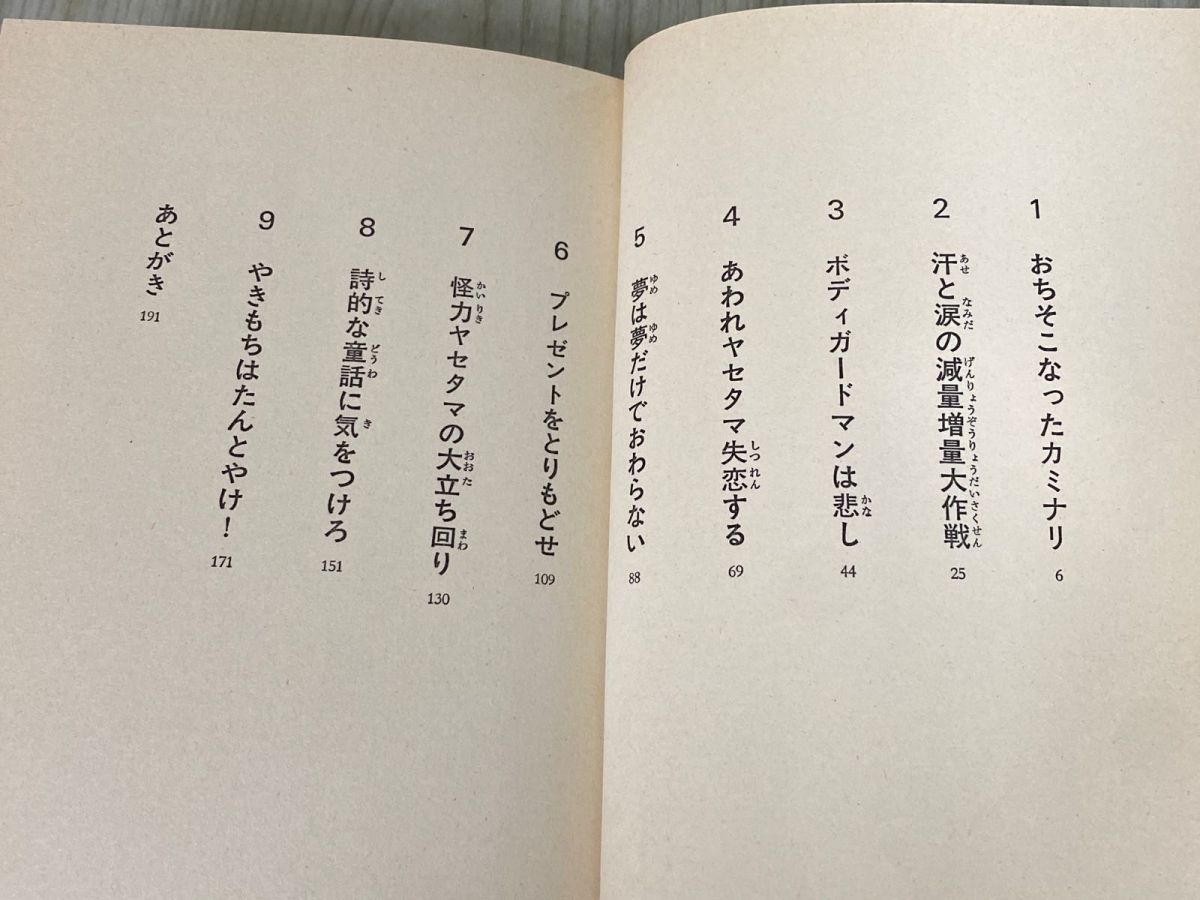 1 おちそこなったカミナリ 6
2 汗と涙の減量増量大作戦 25
3 ボディガードマンは悲し 44
4 あわれヤセタマ失恋する 69
5 夢は夢だけでおわらない 88
6 プレゼントをとりもどせ 109
7 怪力ヤセタマの大立ち回り 130
8 詩的な童話に気をつけろ 151
9 やきもちはたんとやけ! 171
あとがき 191